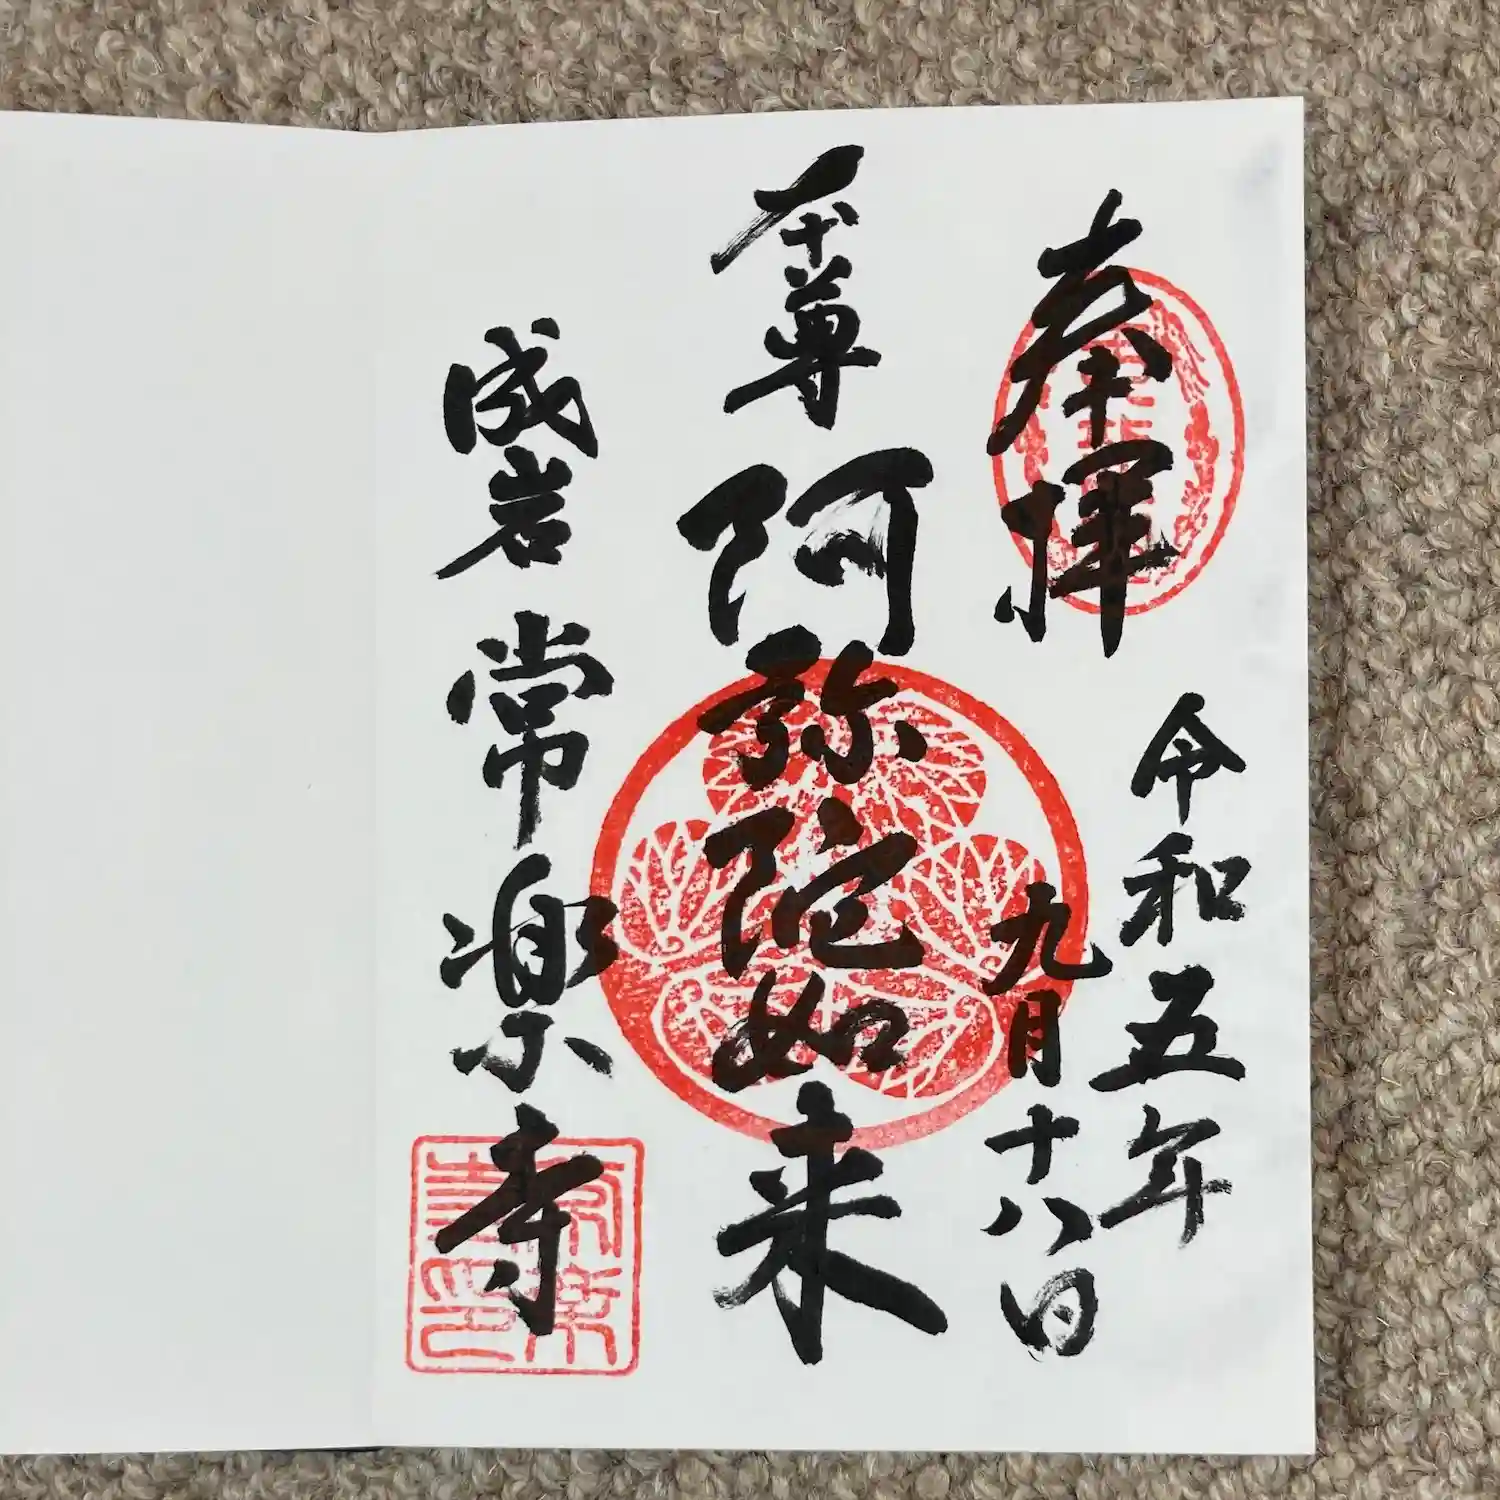 奉拝
令和五年
九月十八日
本尊 阿弥陀如来
成岩 常楽寺
常楽寺印